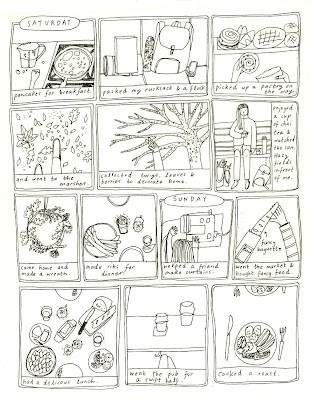 SATURDAY
pancakes for breakfast.
packed my rucksack & a flask.
picked up a pastry on
the way.
and went to the
marshes.
collected twigs, leaves &
berries to decorate home.
enjoyed
a cup
of chai
tea &
watched
the sun.
Hazy
fields
infront
of me.
came home and
made a wreath.
made ribs for
dinner.
SUNDAY
helped a friend
make curtains.
fancy
baguette
went the market &
bought fancy food.
had a delicious lunch.
went the pub for
a swift half.
cooked a roast.